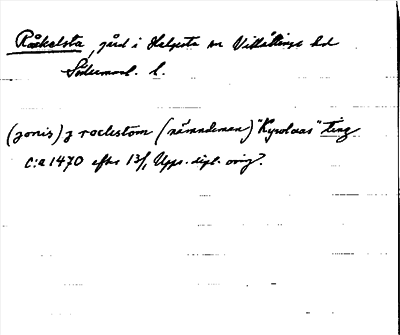 Råckelsta, gård i Helgesta sn Villåttinge hd
Södermanl. l.
(jonis) j roclestom (nämndeman) "Kyrolaas" ting
c:a 1470 efter 13/1 Upps. dipl. orig.